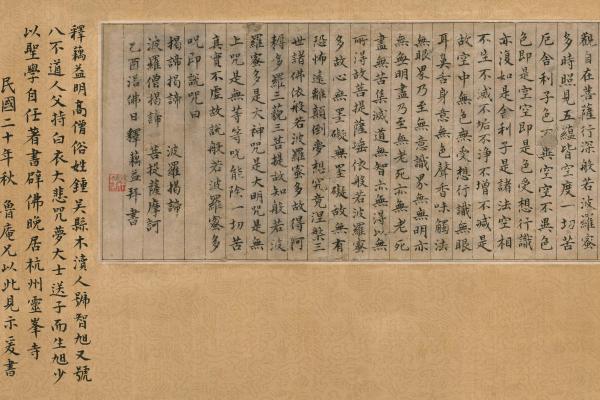 觀自在菩薩行深般若波羅蜜
多時照見五蘊皆空度一切苦
厄舍利子色不異空空不異色
色即是空空即是色受想行識
亦復如是舍利子是諸法空相
不生不滅不垢不淨不增不減是
故空中無色無受想行識無眼
耳鼻舌身意無色聲香味觸法
無眼界乃至無意識界無無明亦
無無明盡乃至無老死亦無老死
盡無苦集滅道無智亦無得以無
所得故菩提薩埵依般若波羅蜜
多故心無罣礙無罣礙故無有
恐怖遠離顛倒夢想究竟涅槃三
世諸佛依般若波羅蜜多故得阿
耨多羅三藐三菩提故知般若波
羅蜜多是大神咒是大明咒是無
上咒是無等等咒能除一切苦
真實不虛故說般若波羅蜜多
咒即說咒曰
揭諦揭諦 波羅揭諦
波羅僧揭諦 菩提薩摩訶
己酉浴佛日 釋蕅益拜書
釋蕅益明高僧俗姓鍾吳縣木瀆人號智旭又號
八不道人父持白衣大悲咒夢大士送子而生旭少
以聖學自任著書辟佛晚居杭州靈峯寺
民國二十年秋 魯庵兄以此見示爰書